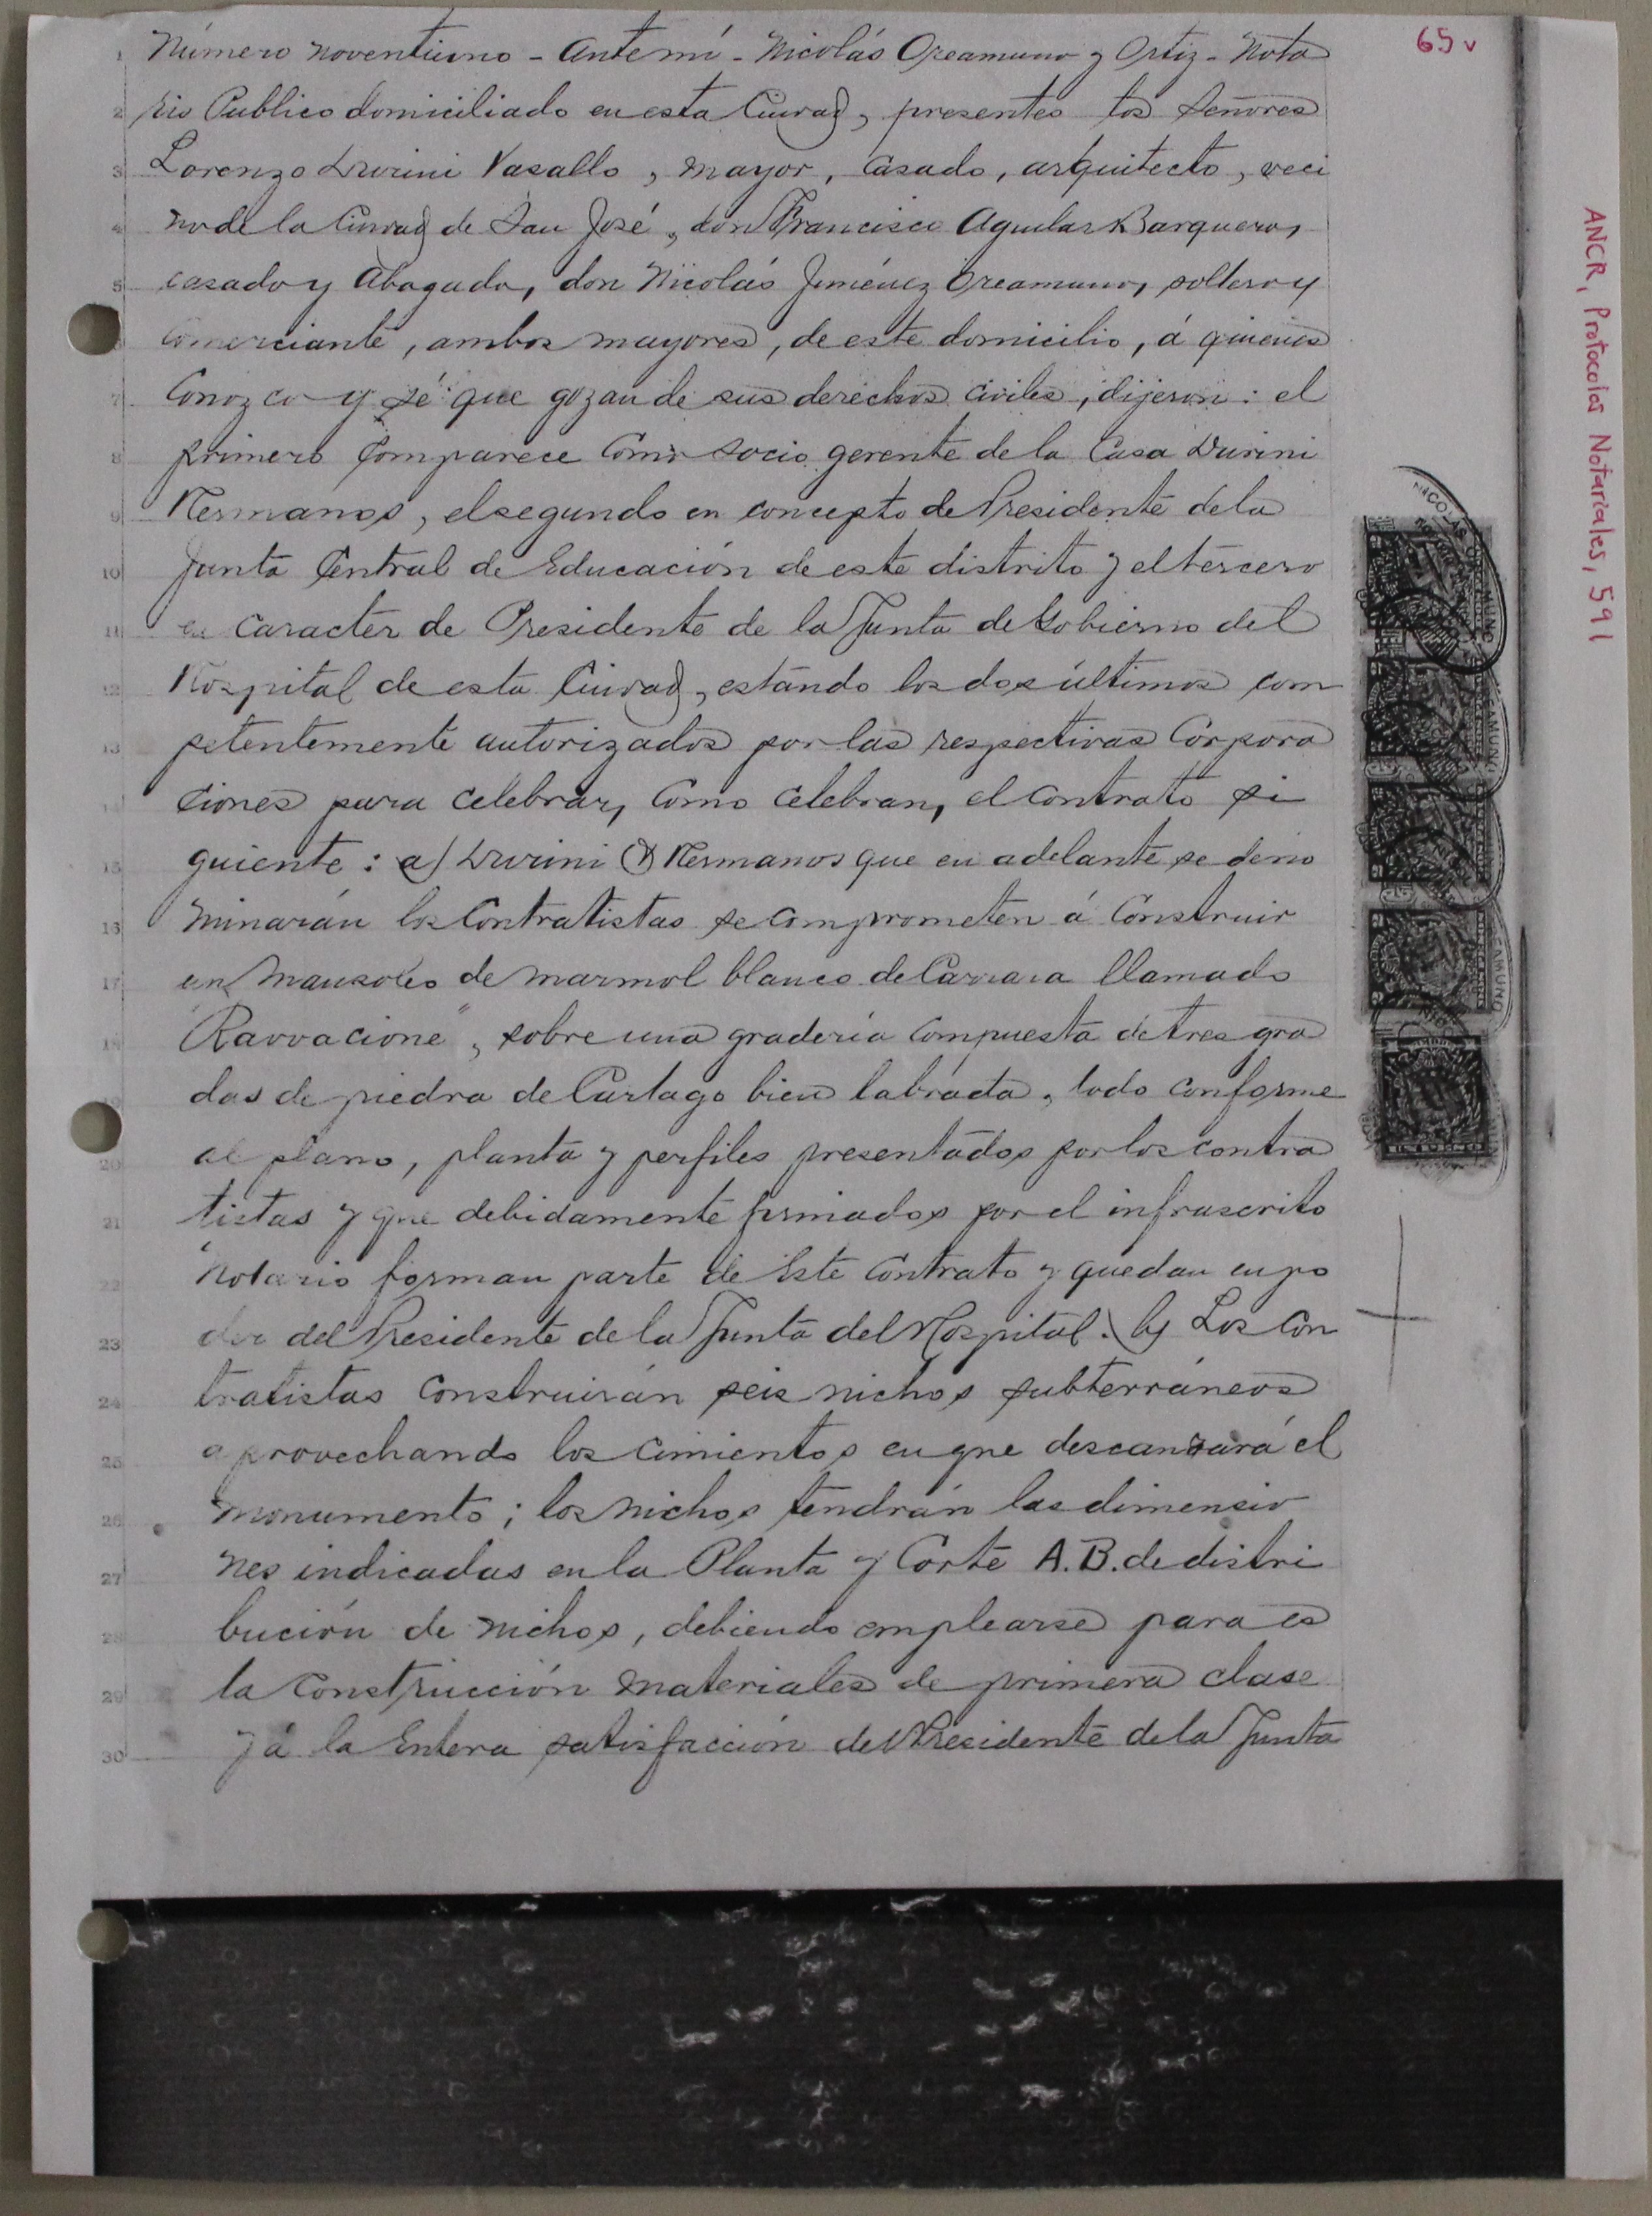 65 v
ANCR, Protocolos Notariales, 591
1 Número noventiuno - Ante mí - Nicolás Oreamuno y Ortiz - Nota
2 rio Publico domiciliado en esta Ciudad, presentes los Señores
3 Lorenzo Durini Vasallo, mayor, casado, arquitecto, veci
4 no de la Ciudad de San José, don Francisco Aguilar Barquero,
5 casado y Abogado, don Nicolás Jiménez Oreamuno, soltero y
comerciante, ambos mayores, de este domicilio, á quienes
7 Conozco y sé que gozan de sus derechos civiles, dijeron: el
8 primero Comparece Como socio gerente de la Casa Durini
9 Hermanos, el segundo en concepto de Presidente de la
10 Junta Central de Educación de este distrito y el tercero
11 en caracter de Presidente de la Junta de Gobierno del
12 Hospital de esta Ciudad, estando los dos últimos com
13 petentemente autorizados por las respectivas Corpora
14 ciones para celebrar, Como celebran, el Contrato si
15 guiente: a) Durini & Hermanos que en adelante se deno
16 minarán los Contratistas se comprometen á Construir
17 un mausoleo de marmol blanco de Carrara llamado
18 "Ravvacione", sobre una gradería compuesta de tres gra
19 das de piedra de Cartago bien labrada, todo conforme
20 al plano, planta y perfiles presentados por los contra
21 tistas y que debidamente firmados por el infrascrito
22 Notario forman parte de este Contrato y quedan en po
23 der del Presidente de la Junta del Hospital. b) Los Con
24 tratistas Construirán seis nichos subterráneos
25 aprovechando los cimientos en que descansará el
26 monumento; los nichos tendrán las dimensio
27 nes indicadas en la Planta y Corte A.B. de distri
28 bución de nichos, debiendo emplearse para es
29 ta Construcción materiales de primera clase
30 y á la entera satisfacción del Presidente de la Junta